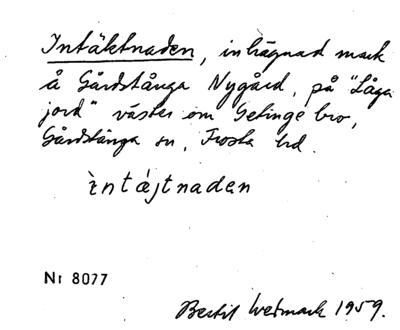 Intäktnaden, inhägnad mark
å Gårdstånga Nygård, på "Låga
jord" väster om Getinge bro,
Gårdstånga sn, Frosta hd.
ìntǽjtnaden
Nr 8077
Bertil Wetmark 1959.